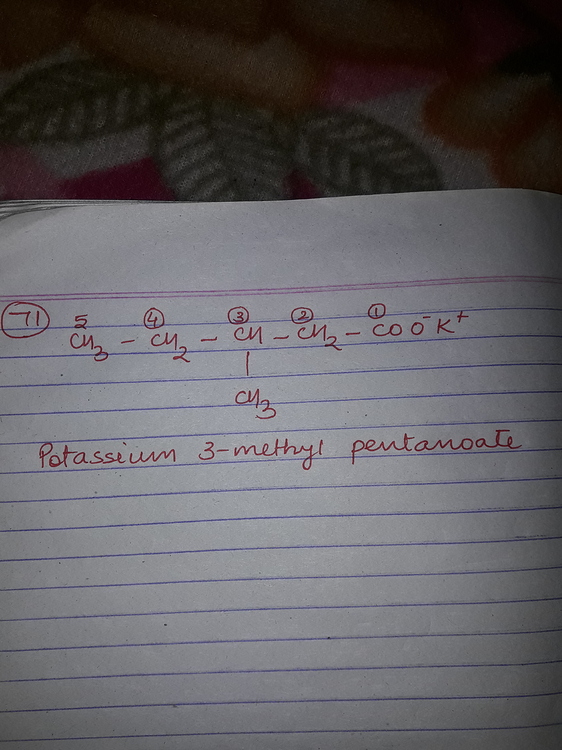 71
5 ④ ③ ② ①
CH₃ – CH₂ – CH – CH₂ – COO⁻K⁺
|
CH₃
Potassium 3-methyl pentanoate